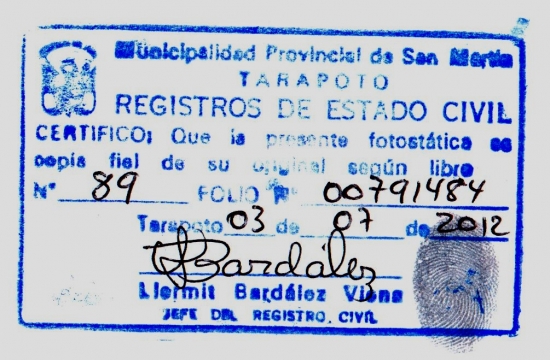 Municipalidad Provincial de San Martín
TARAPOTO
REGISTROS DE ESTADO CIVIL
CERTIFICO: Que la presente fotostática es
copia fiel de su original según libro
N° 89 FOLIO N° 00791484
Tarapoto 03 de 07 de 2012
Bardález
Llermit Bardález
JEFE DEL REGISTRO CIVIL